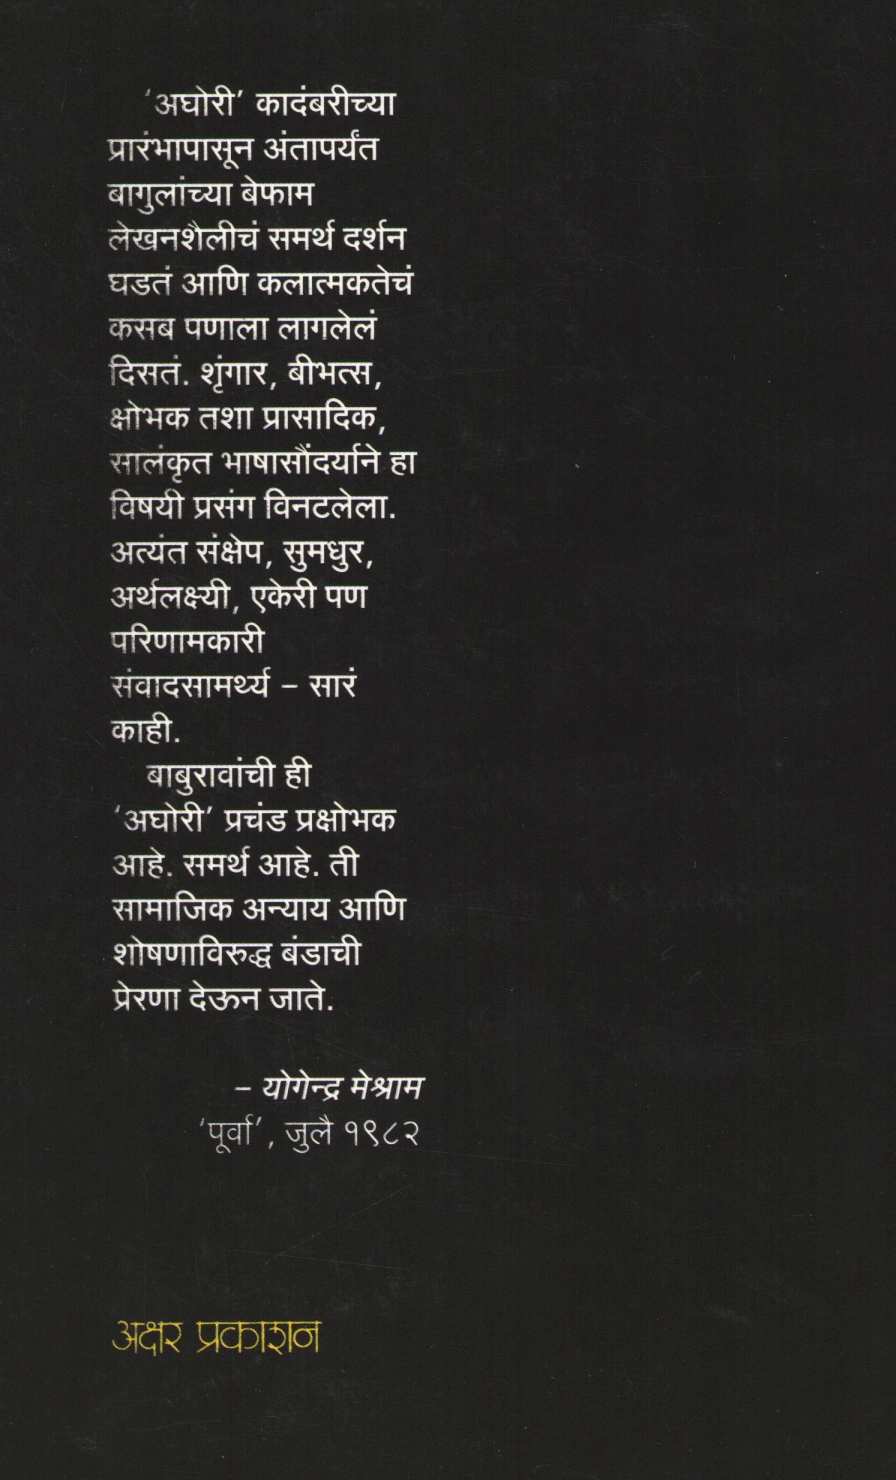 ‘अघोरी’ कादंबरीच्या
प्रारंभापासून अंतापर्यंत
बागुलांच्या बेफाम
लेखनशैलीचं समर्थ दर्शन
घडतं आणि कलात्मकतेचं
कसब पणाला लागलेलं
दिसतं. शृंगार, बीभत्स,
क्षोभक तशा प्रासादिक,
सालंकृत भाषासौंदर्याने हा
विषयी प्रसंग विनटलेला.
अत्यंत संक्षेप, सुमधुर,
अर्थलक्ष्यी, एकेरी पण
परिणामकारी
संवादसामर्थ्य – सारं
काही.
बाबुरावांची ही
‘अघोरी’ प्रचंड प्रक्षोभक
आहे. समर्थ आहे. ती
सामाजिक अन्याय आणि
शोषणाविरुद्ध बंडाची
प्रेरणा देऊन जाते.
– योगेन्द्र मेश्राम
‘पूर्वा’, जुलै १९८२
अक्षर प्रकाशन